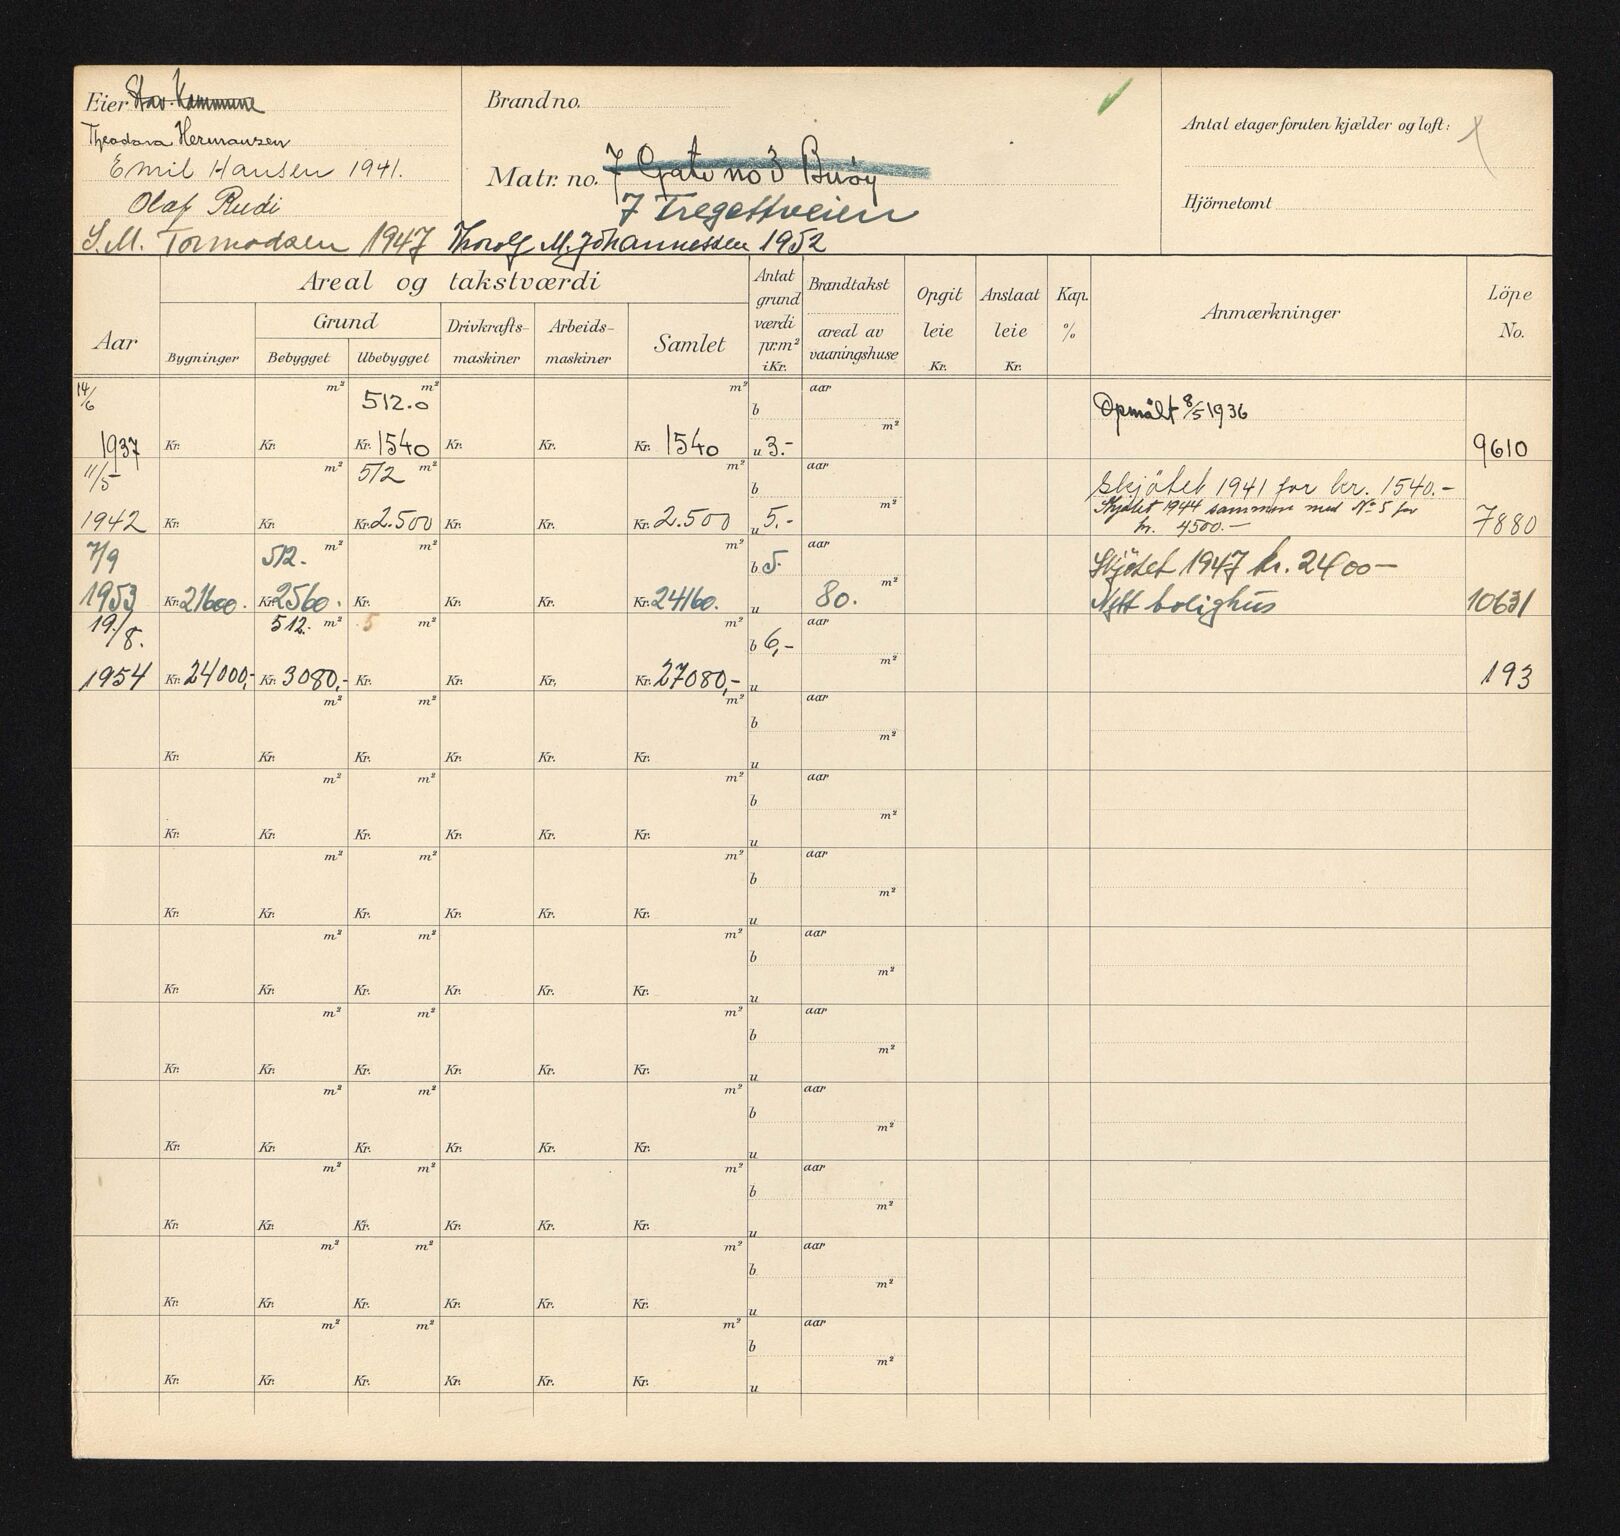 Eier Stav. Kommune
Theodora Hermansen
Emil Hansen 1941.
Olaf Rudi
S. M. Tormodsen 1947 Thorolf M. Johannessen 1952
Brand no.
Matr. no. 7 Gate no 3 Buøy
7 Tregettveien
Antal etager foruten kjælder og loft:
Hjörnetomt
Aar
Areal og takstværdi
Bygninger
Grund
Bebygget
Ubebygget
Drivkrafts-
maskiner
Arbeids-
maskiner
Samlet
Antat
grund
værdi
pr. m²
i Kr.
Brandtakst
areal av
vaaningshuse
Opgit
leie
Kr.
Anslaat
leie
Kr.
Kap.
%
Anmærkninger
Löpe
No.
14/6 m² 512.0 m² m² b aar m² Opmålt 8/5 1936
1937 Kr. Kr. Kr. 1540 Kr. Kr. Kr. 1540 u 3.- 9610
11/5 m² 512 m² m² b aar m² Skjötet 1941 for kr. 1540.-
Skjötet 1944 sammen med No 5 for
1942 Kr. Kr. Kr. 2.500 Kr. Kr. Kr. 2.500 u 5.- kr. 4500.- 7880
7/9 512. m² m² m² b 5. aar m² Skjötet 1947 kr. 2400-
1953 Kr. 21600. Kr. 2560. Kr. Kr. Kr. Kr. 24160. u 80. Nytt bolighus 10631
19./8. 512. m² 5 m² m² b 6,- aar m²
1954 Kr. 24000,- Kr. 3080,- Kr. Kr. Kr. Kr. 27080,- u 193
m² m² m² b aar m²
Kr. Kr. Kr. Kr. Kr. Kr. u
m² m² m² b aar m²
Kr. Kr. Kr. Kr. Kr. Kr. u
m² m² m² b aar m²
Kr. Kr. Kr. Kr. Kr. Kr. u
m² m² m² b aar m²
Kr. Kr. Kr. Kr. Kr. Kr. u
m² m² m² b aar m²
Kr. Kr. Kr. Kr. Kr. Kr. u
m² m² m² b aar m²
Kr. Kr. Kr. Kr. Kr. Kr. u
m² m² m² b aar m²
Kr. Kr. Kr. Kr. Kr. Kr. u
m² m² m² b aar m²
Kr. Kr. Kr. Kr. Kr. Kr. u
m² m² m² b aar m²
Kr. Kr. Kr. Kr. Kr. Kr. u